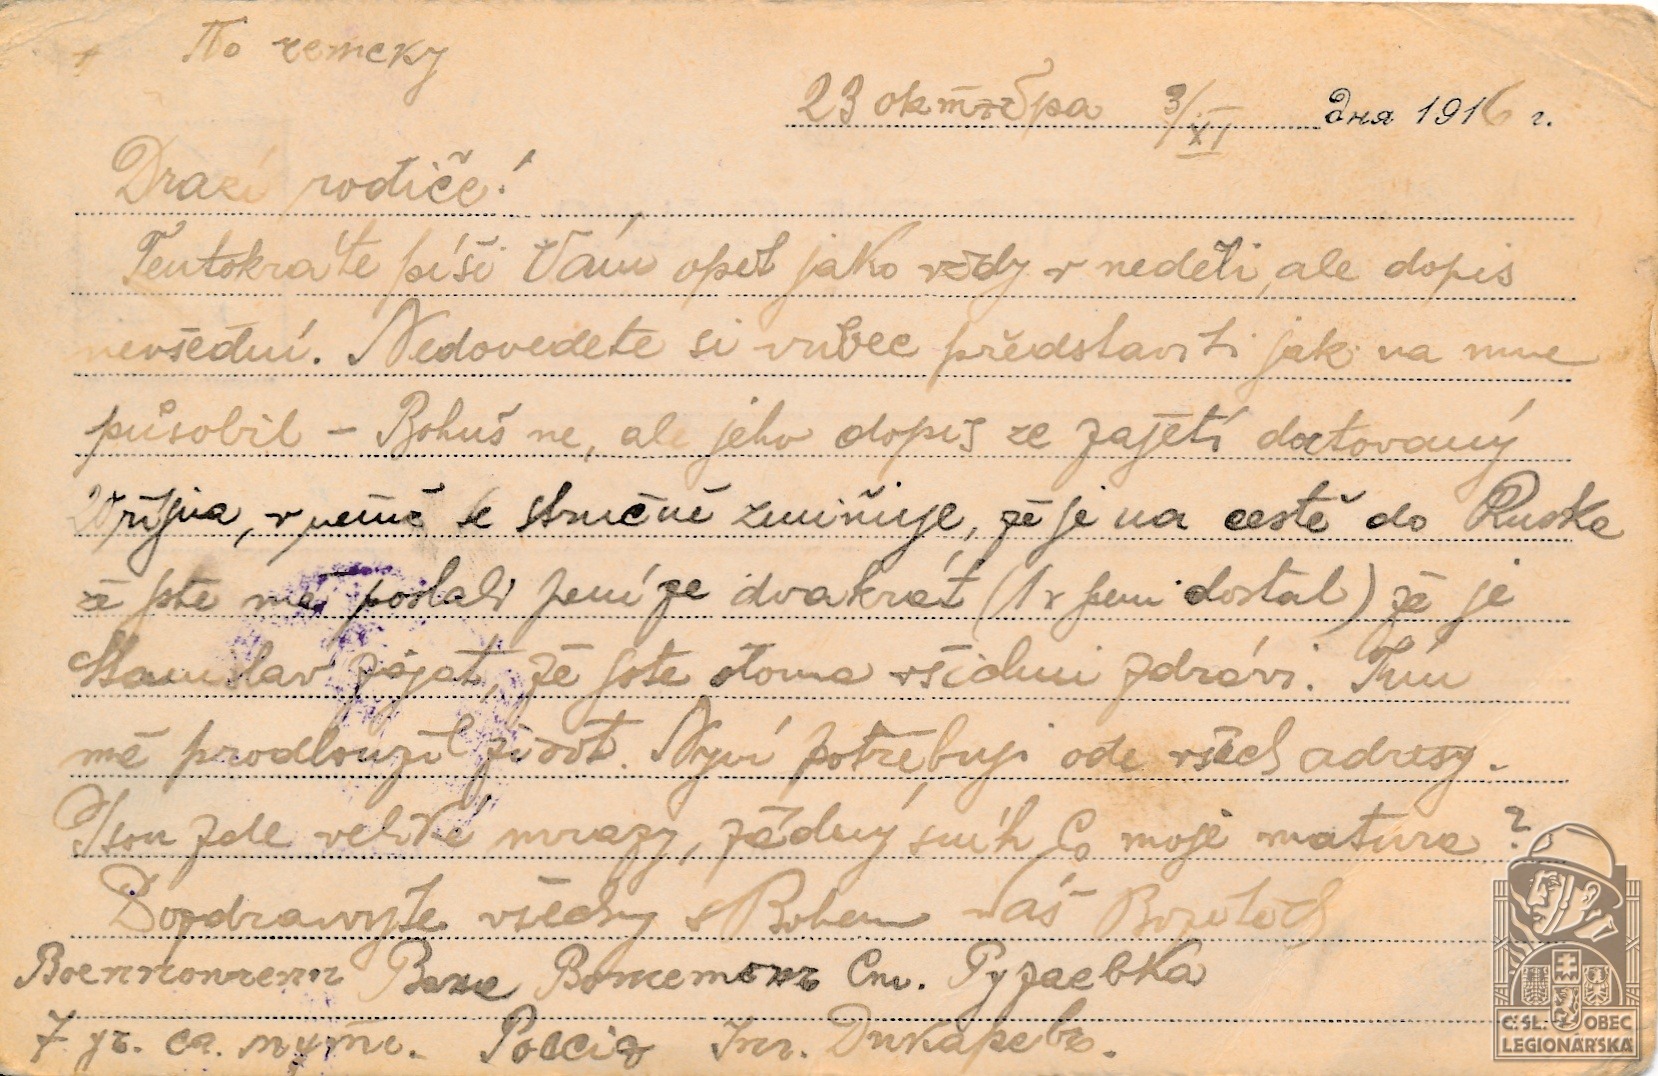 По чешску
23 октября 3/XI дня 1916 г.
Drazí rodiče!
Tentokráte píši Vám opět jako vždy v neděli, ale dopis
nevšední. Nedovedete si vůbec představiti jak na mne
působil – Bohuš ne, ale jeho dopis ze zajetí datovaný
října, v němž se stručně zmiňuje, že je na cestě do Ruska
že jste mě poslali peníze dvakrát (1x jsem dostal) že je
Stanislav zajat, že jste doma všichni zdrávi. Tím
mě prodloužil život. Nyní potřebuji ode všech adresy.
Jsou zde veliké mrazy, žádný sníh Co moje matura?
Pozdravujte všechny s Bohem Váš
Военнопленн Ст. Рузаевка
7 уч. сл. пути. Россія Инж. Дикаревъ.
C.SL. OBEC
LEGIONÁRSKÁ